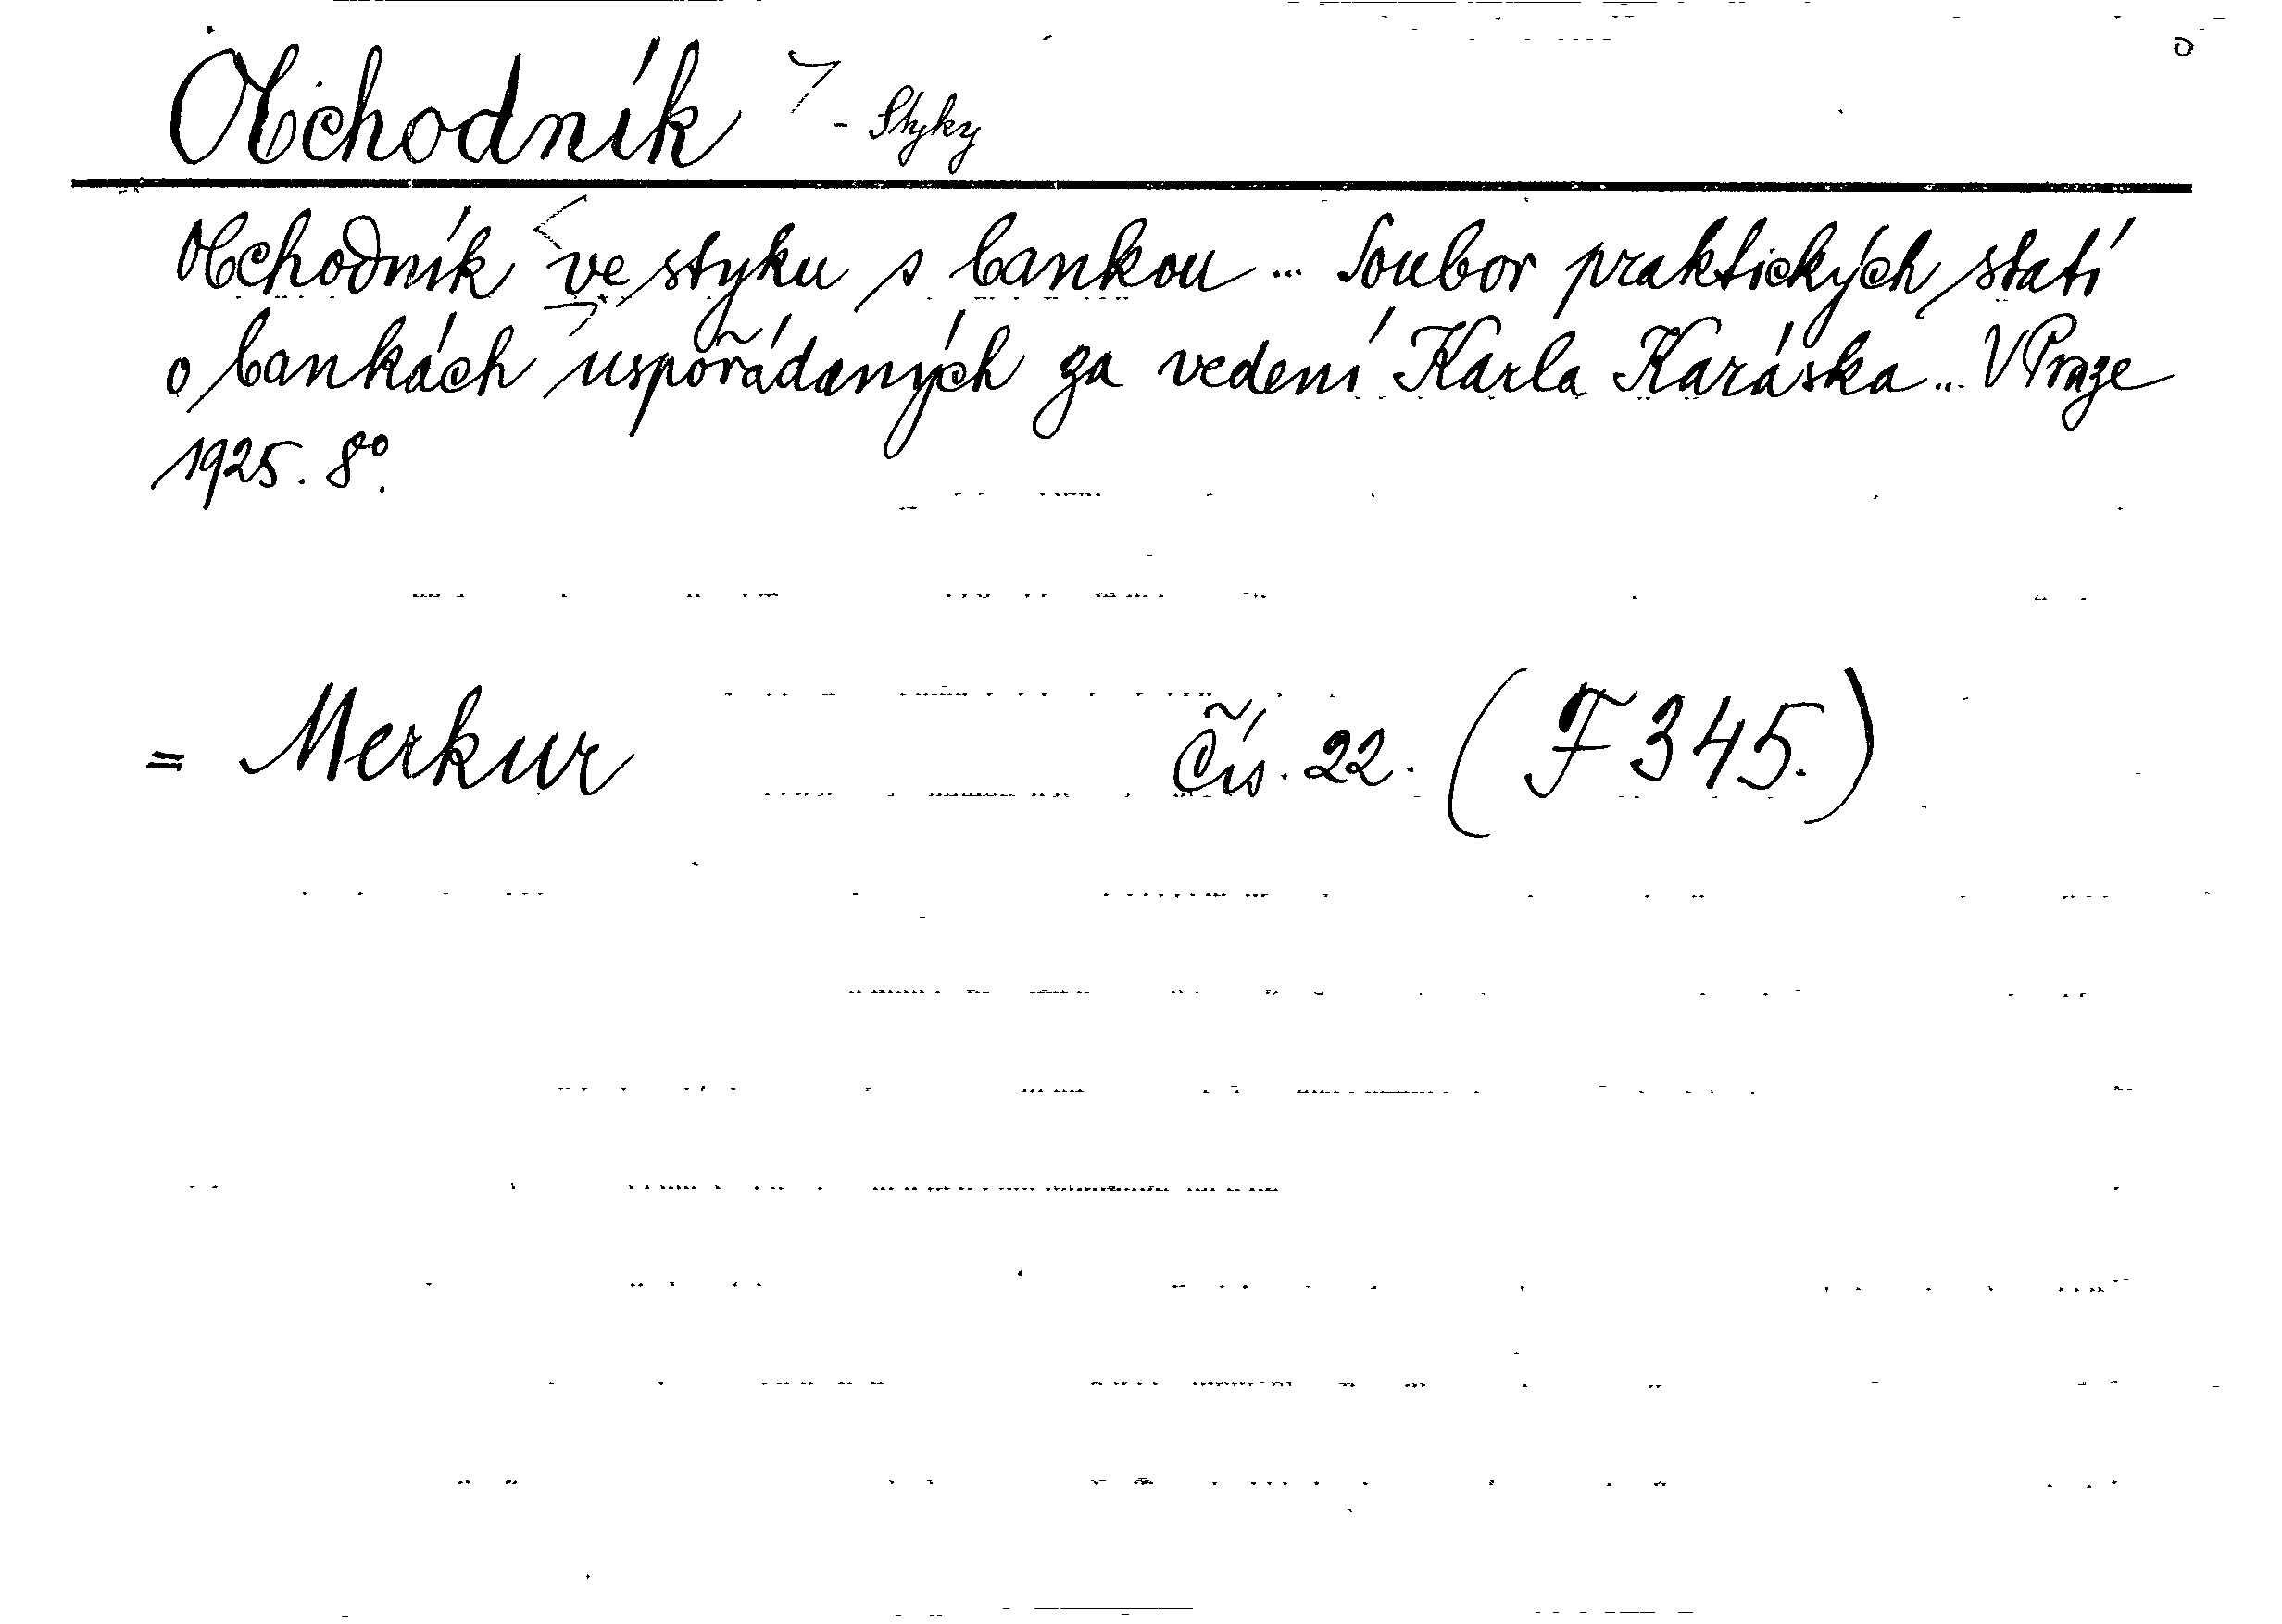 Obchodník - Styky
Obchodník ve styku s bankou ... Soubor praktických statí
o bankách uspořádaných za vedení Karla Karáska ... V Praze
1925. 8°.
= Merkur Čís. 22. (F 345.)